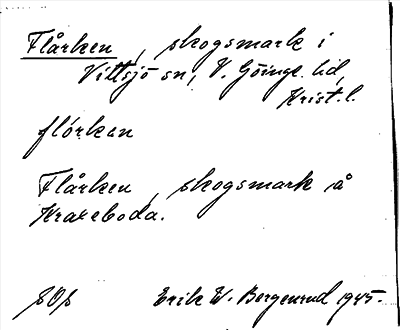 Flårken, skogsmark i
Vittsjö sn, V. Göinge hd,
Krist. l.
flórkan
Flårken, skogsmark å
Kra
boda.
Erik W. Bergenrud 1945.